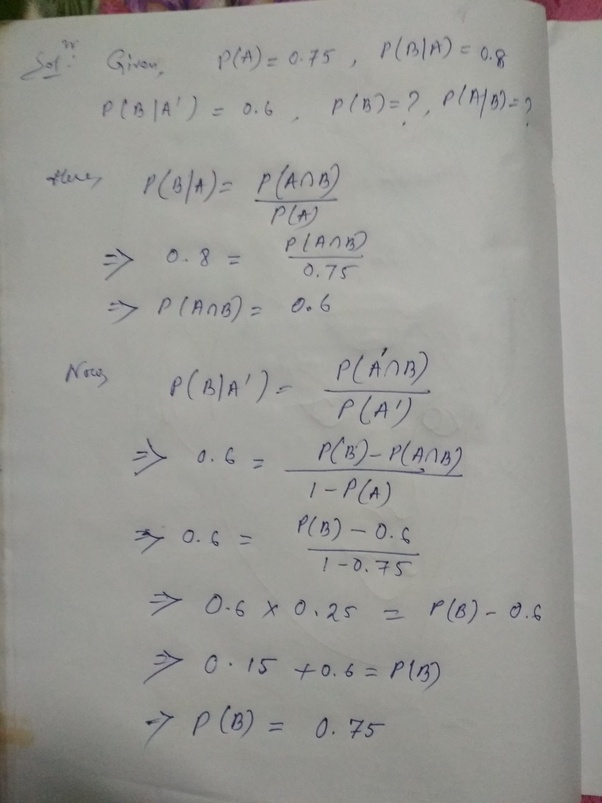 Solⁿ: Given, P(A) = 0.75, P(B|A) = 0.8
P(B|A') = 0.6, P(B) = ?, P(A|B) = ?
Here, P(B|A) = P(A∩B) / P(A)
⇒ 0.8 = P(A∩B) / 0.75
⇒ P(A∩B) = 0.6
Now, P(B|A') = P(A'∩B) / P(A')
⇒ 0.6 = P(B) - P(A∩B) / 1 - P(A)
⇒ 0.6 = P(B) - 0.6 / 1 - 0.75
⇒ 0.6 × 0.25 = P(B) - 0.6
⇒ 0.15 + 0.6 = P(B)
⇒ P(B) = 0.75